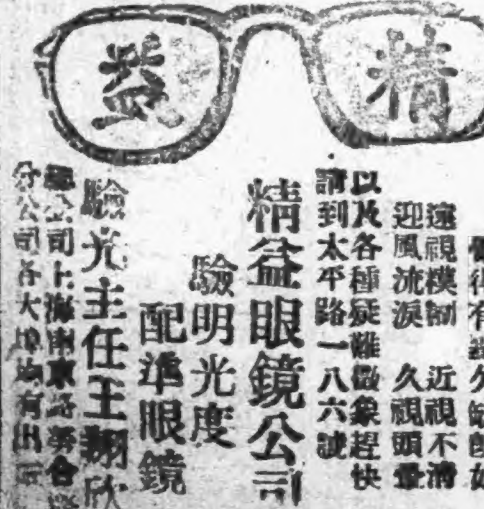 精益
遠視模糊 近視不清
迎風流淚 久視頭暈
以及各種疑難徵象趕快
請到太平路一八六號
精益眼鏡公司
驗明光度
配準眼鏡
驗光主任王翔欣
總公司上海南京路
分公司各大埠均有